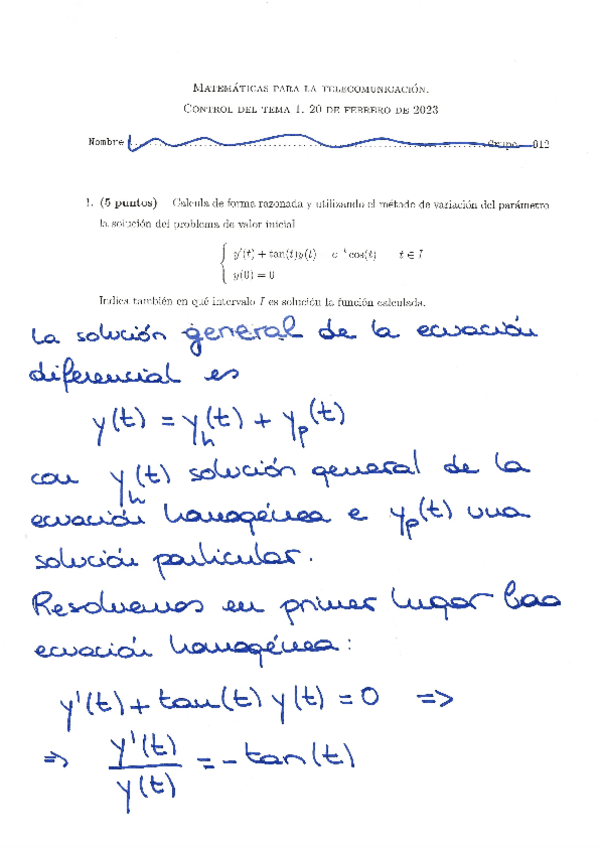 MATEMÁTICAS PARA LA TELECOMUNICACIÓN.
CONTROL DEL TEMA 1. 20 DE FEBRERO DE 2023
Nombre Grupo 012
1. (5 puntos) Calcula de forma razonada y utilizando el método de variación del parámetro
la solución del problema de valor inicial
y'(t) + tan(t)y(t) = e⁻ᵗ cos(t) t ∈ I
y(0) = 0
Indica también en qué intervalo I es solución la función calculada.
La solución general de la ecuación
diferencial es
y(t) = y_h(t) + y_p(t)
con y_h(t) solución general de la
ecuación homogénea e y_p(t) una
solución particular.
Resolvemos en primer lugar
ecuación homogénea:
y'(t) + tan(t) y(t) = 0 =>
=> y'(t)/y(t) = - tan(t)